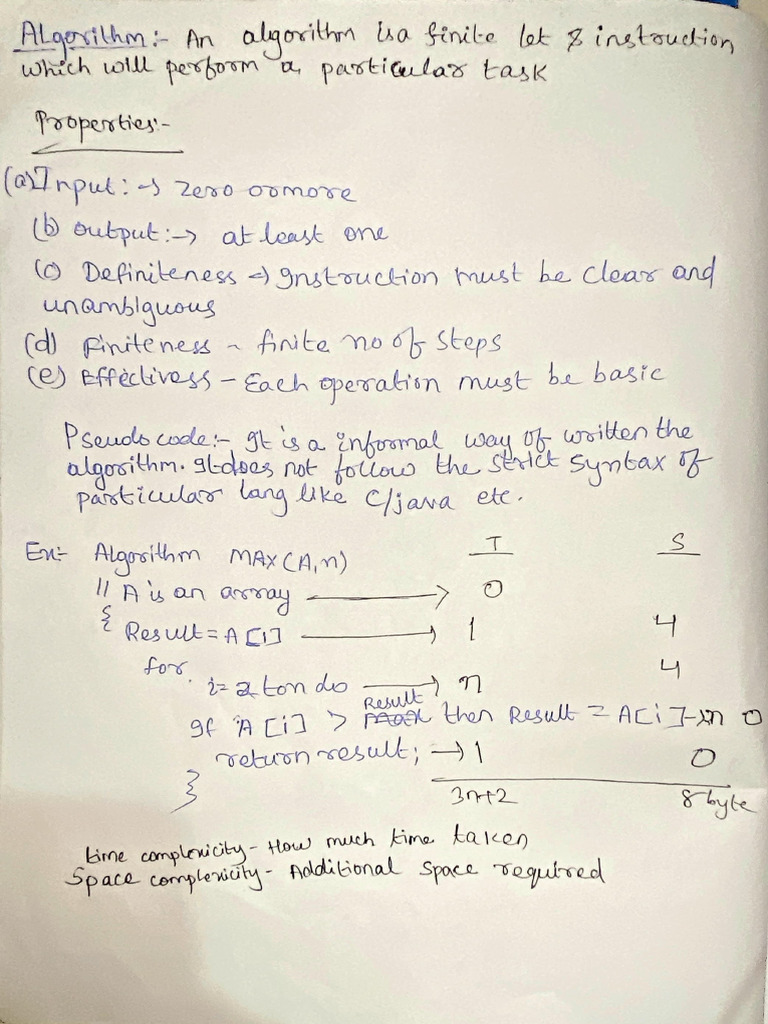 Algorithm:- An algorithm is a finite let & instruction
which will perform a particular task
Properties:-
(a) Input: → zero or more
(b) output: → at least one
(c) Definiteness → Instruction must be clear and
unambiguous
(d) Finiteness - finite no of steps
(e) Effectivess - Each operation must be basic
Pseudo code:- It is a informal way of written the
algorithm. It does not follow the strict syntax of
particular lang like C/java etc.
Ex:- Algorithm MAX (A,n) T S
// A is an array → 0
{ Result = A[i] → 1 4
for 4
i = 2 to n do → n
If A[i] > Result then Result = A[i] - n 0
return result; → 1 0
} 3n+2 8 byte
time complexicity - How much time taken
Space complexicity - Additional space required